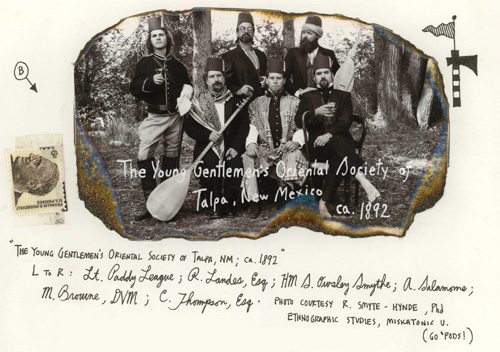 B
The Young Gentlemen's Oriental Society of
Talpa, New Mexico
ca. 1892
FRANKLIN D. ROOSEVELT
U.S. POSTAGE
6¢
"THE YOUNG GENTLEMEN'S ORIENTAL SOCIETY OF TALPA, NM; CA. 1892"
L TO R: Lt. Paddy League; R. Landes, Esq; HM S. Owsley Smythe; A. Salamone;
M. Browne, DVM; C. Thompson, Esq. PHOTO COURTESY R. SMYTE-HYNDE, PhD
ETHNOGRAPHIC STUDIES, MISKATONIC U.
(GO 'PODS!)